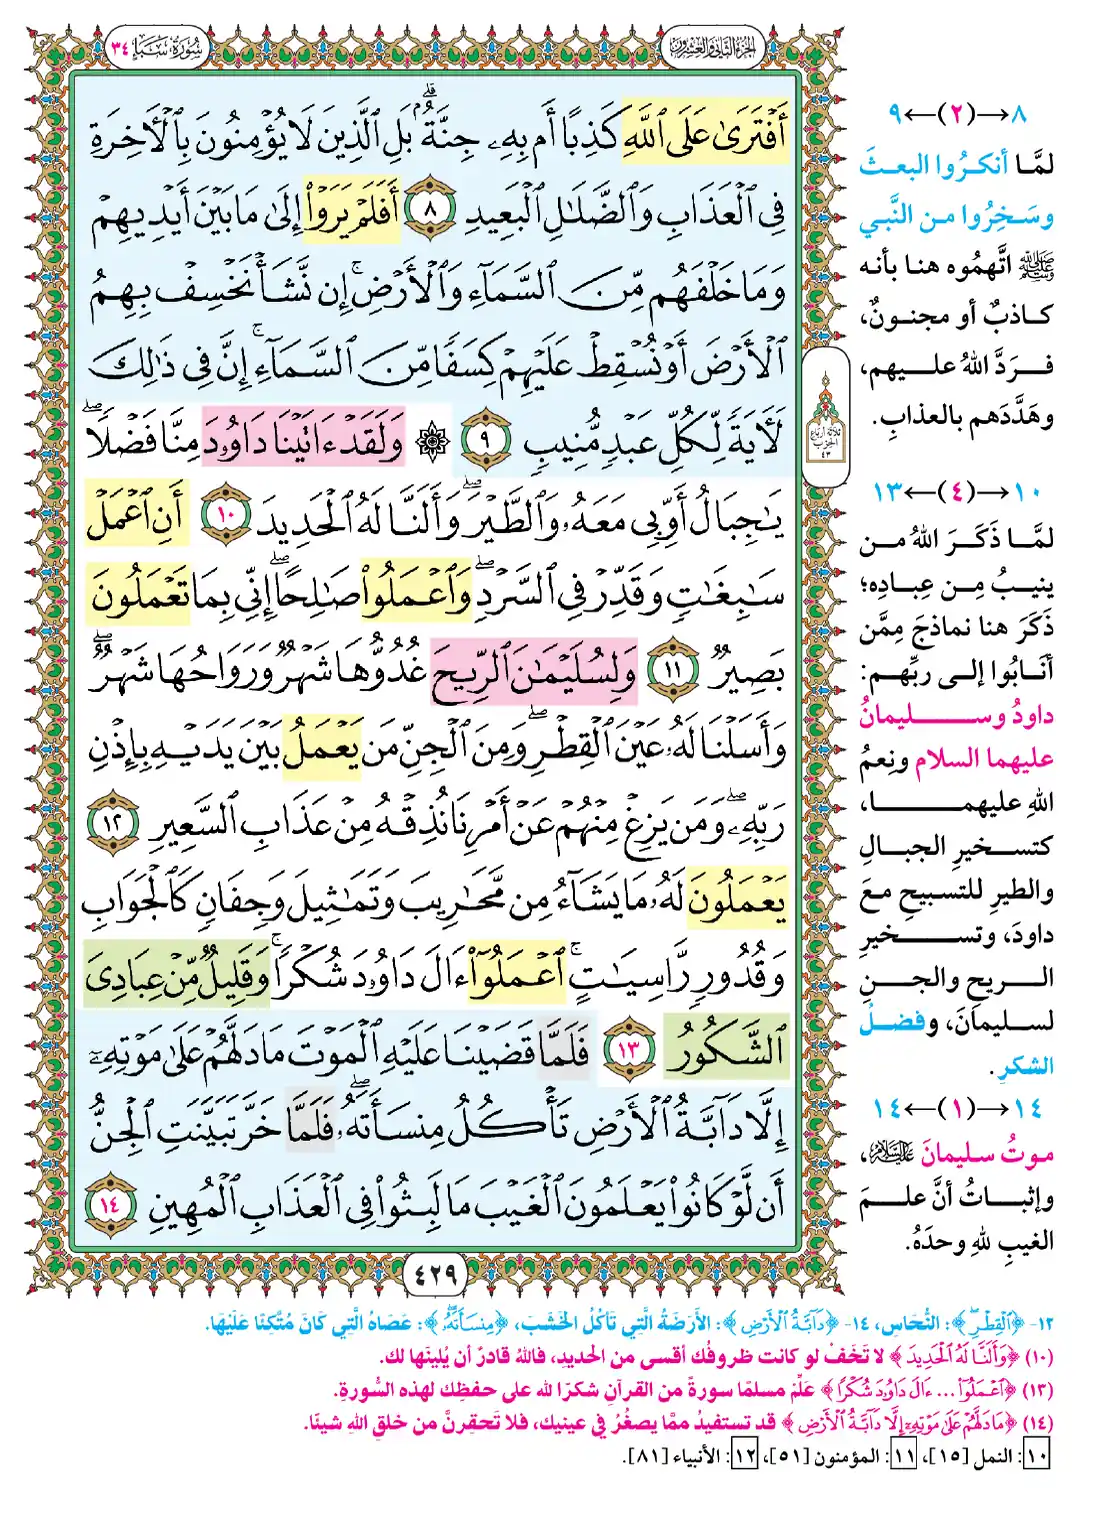 الجزء الثاني والعشرون
سُورَةُ سَبَإٍ ٣٤
أَفْتَرَىٰ عَلَى ٱللَّهِ كَذِبًا أَم بِهِۦ جِنَّةٌۢ ۗ بَلِ ٱلَّذِينَ لَا يُؤْمِنُونَ بِٱلْأَخِرَةِ
فِى ٱلْعَذَابِ وَٱلضَّلَٰلِ ٱلْبَعِيدِ ٨ أَفَلَمْ يَرَوْا۟ إِلَىٰ مَا بَيْنَ أَيْدِيهِمْ
وَمَا خَلْفَهُم مِّنَ ٱلسَّمَآءِ وَٱلْأَرْضِ ۚ إِن نَّشَأْ نَخْسِفْ بِهِمُ
ٱلْأَرْضَ أَوْ نُسْقِطْ عَلَيْهِمْ كِسَفًا مِّنَ ٱلسَّمَآءِ ۚ إِنَّ فِى ذَٰلِكَ
لَأَيَةً لِّكُلِّ عَبْدٍ مُّنِيبٍ ٩ ۞ وَلَقَدْ ءَاتَيْنَا دَاوُۥدَ مِنَّا فَضْلًا ۖ
يَٰجِبَالُ أَوِّبِى مَعَهُۥ وَٱلطَّيْرَ ۖ وَأَلَنَّا لَهُ ٱلْحَدِيدَ ١٠ أَنِ ٱعْمَلْ
سَٰبِغَٰتٍ وَقَدِّرْ فِى ٱلسَّرْدِ ۖ وَٱعْمَلُوا۟ صَٰلِحًا ۖ إِنِّى بِمَا تَعْمَلُونَ
بَصِيرٌ ١١ وَلِسُلَيْمَٰنَ ٱلرِّيحَ غُدُوُّهَا شَهْرٌ وَرَوَاحُهَا شَهْرٌ ۖ
وَأَسَلْنَا لَهُۥ عَيْنَ ٱلْقِطْرِ ۖ وَمِنَ ٱلْجِنِّ مَن يَعْمَلُ بَيْنَ يَدَيْهِ بِإِذْنِ
رَبِّهِۦ ۖ وَمَن يَزِغْ مِنْهُمْ عَنْ أَمْرِنَا نُذِقْهُ مِنْ عَذَابِ ٱلسَّعِيرِ ١٢
يَعْمَلُونَ لَهُۥ مَا يَشَآءُ مِن مَّحَٰرِيبَ وَتَمَٰثِيلَ وَجِفَانٍ كَٱلْجَوَابِ
وَقُدُورٍ رَّاسِيَٰتٍ ۚ ٱعْمَلُوٓا۟ ءَالَ دَاوُۥدَ شُكْرًا ۚ وَقَلِيلٌ مِّنْ عِبَادِىَ
ٱلشَّكُورُ ١٣ فَلَمَّا قَضَيْنَا عَلَيْهِ ٱلْمَوْتَ مَا دَلَّهُمْ عَلَىٰ مَوْتِهِۦٓ
إِلَّا دَآبَّةُ ٱلْأَرْضِ تَأْكُلُ مِنسَأَتَهُۥ ۖ فَلَمَّا خَرَّ تَبَيَّنَتِ ٱلْجِنُّ
أَن لَّوْ كَانُوا۟ يَعْلَمُونَ ٱلْغَيْبَ مَا لَبِثُوا۟ فِى ٱلْعَذَابِ ٱلْمُهِينِ ١٤
ثلاثة أرباع
الحزب
٤٣
٤٢٩
٨→(٢)←٩
لمَّا أنكرُوا البعثَ
وسَخِرُوا من النَّبي
ﷺ اتَّهمُوه هنا بأنه
كاذبٌ أو مجنونٌ،
فردَّ اللهُ عليهم،
وهَدَّدَهم بالعذابِ.
١٠→(٤)←١٣
لمَّا ذَكَرَ اللهُ من
ينيبُ مِن عِبادِه؛
ذَكَرَ هنا نماذجَ مِمَّن
أنابُوا إلى ربِّهم:
داودُ وسليمانُ
عليهما السلام ونِعمُ
اللهِ عليهما،
كتسخيرِ الجبالِ
والطيرِ للتسبيحِ معَ
داودَ، وتسخيرِ
الريحِ والجنِ
لسليمانَ، وفضلُ
الشكرِ.
١٤→(١)←١٤
موتُ سليمانَ عليه السلام،
وإثباتُ أنَّ علمَ
الغيبِ للهِ وحدَهُ.
١٢- ﴿ٱلْقِطْرِ ۖ﴾: النُّحَاسِ، ١٤- ﴿دَآبَّةُ ٱلْأَرْضِ﴾: الأَرَضَةُ الَّتِي تَأْكُلُ الخَشَبَ، ﴿مِنسَأَتَهُۥ ۖ﴾: عَصَاهُ الَّتِي كَانَ مُتَّكِئًا عَلَيْهَا.
(١٠) ﴿وَأَلَنَّا لَهُ ٱلْحَدِيدَ﴾ لا تَخَفْ لو كانت ظروفُك أقسى من الحديدِ، فاللهُ قادرٌ أن يُلينَها لك.
(١٣) ﴿ٱعْمَلُوٓا۟ ... ءَالَ دَاوُۥدَ شُكْرًا﴾ علِّمْ مسلمًا سورةً من القرآنِ شكرًا لله على حفظِك لهذه السُّورةِ.
(١٤) ﴿مَا دَلَّهُمْ عَلَىٰ مَوْتِهِۦٓ إِلَّا دَآبَّةُ ٱلْأَرْضِ﴾ قد تستفيدُ ممَّا يصغُرُ في عينيك، فلا تَحقِرنَّ من خلقِ اللهِ شيئًا.
١٠: النمل [١٥]، ١١: المؤمنون [٥١]، ١٢: الأنبياء [٨١].